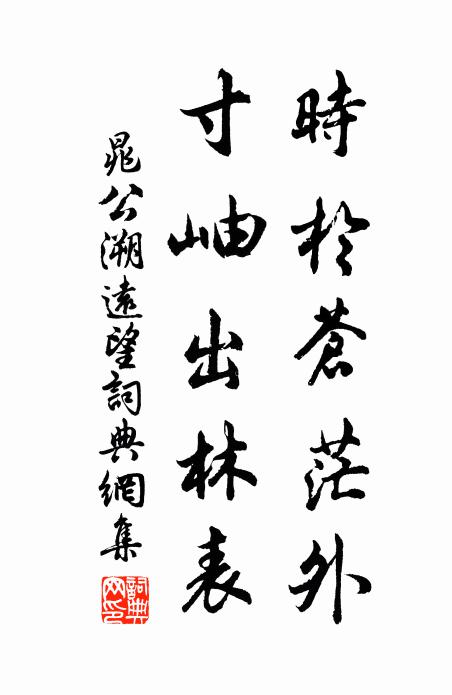 時於蒼茫外
寸岫出林表
晁公溯遠望詞典網集
詞典網印